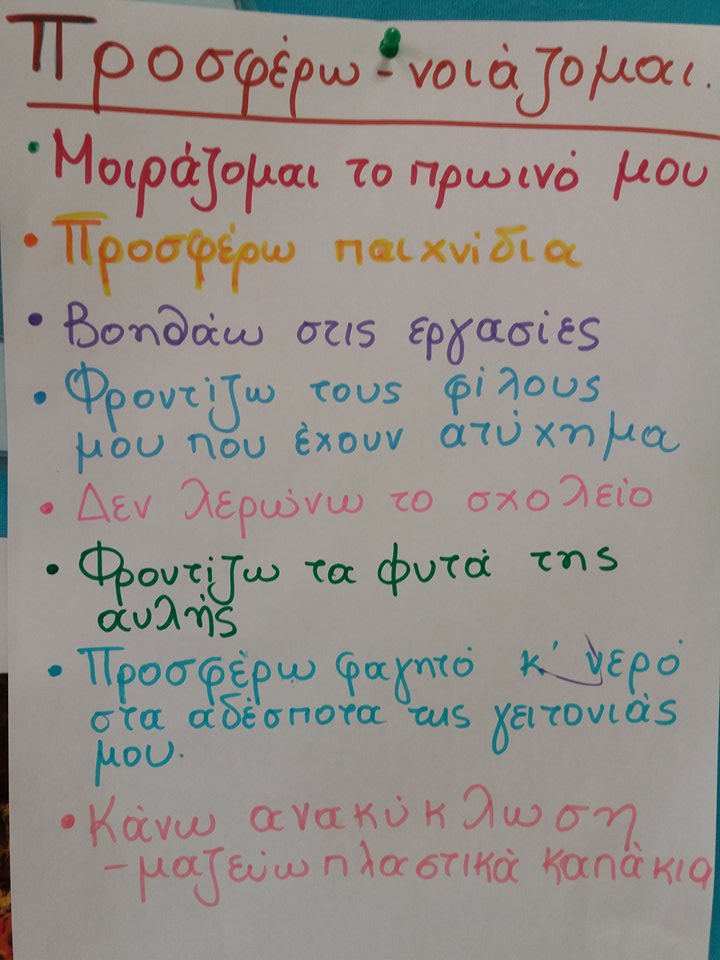 Προσφέρω - νοιάζομαι.
• Μοιράζομαι το πρωινό μου
• Προσφέρω παιχνίδια
• Βοηθάω στις εργασίες
• Φροντίζω τους φίλους
μου που έχουν ατύχημα
• Δεν λερώνω το σχολείο
• Φροντίζω τα φυτά της
αυλής
• Προσφέρω φαγητό κ' νερό
στα αδέσποτα της γειτονιάς
μου.
• Κάνω ανακύκλωση
- μαζεύω πλαστικά καπάκια